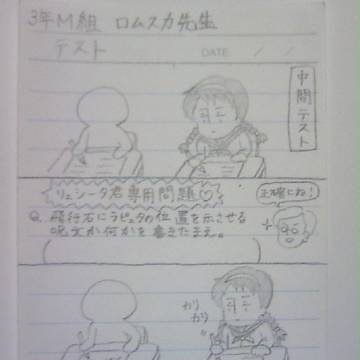 3年M組 ロムスカ先生
テスト
DATE / /
中間テスト
リュシータ君専用問題♡
正確にね!
Q. 飛行石にラピュタの位置を示させる
呪文か何かを書きたまえ。
( )
カリ
カリ